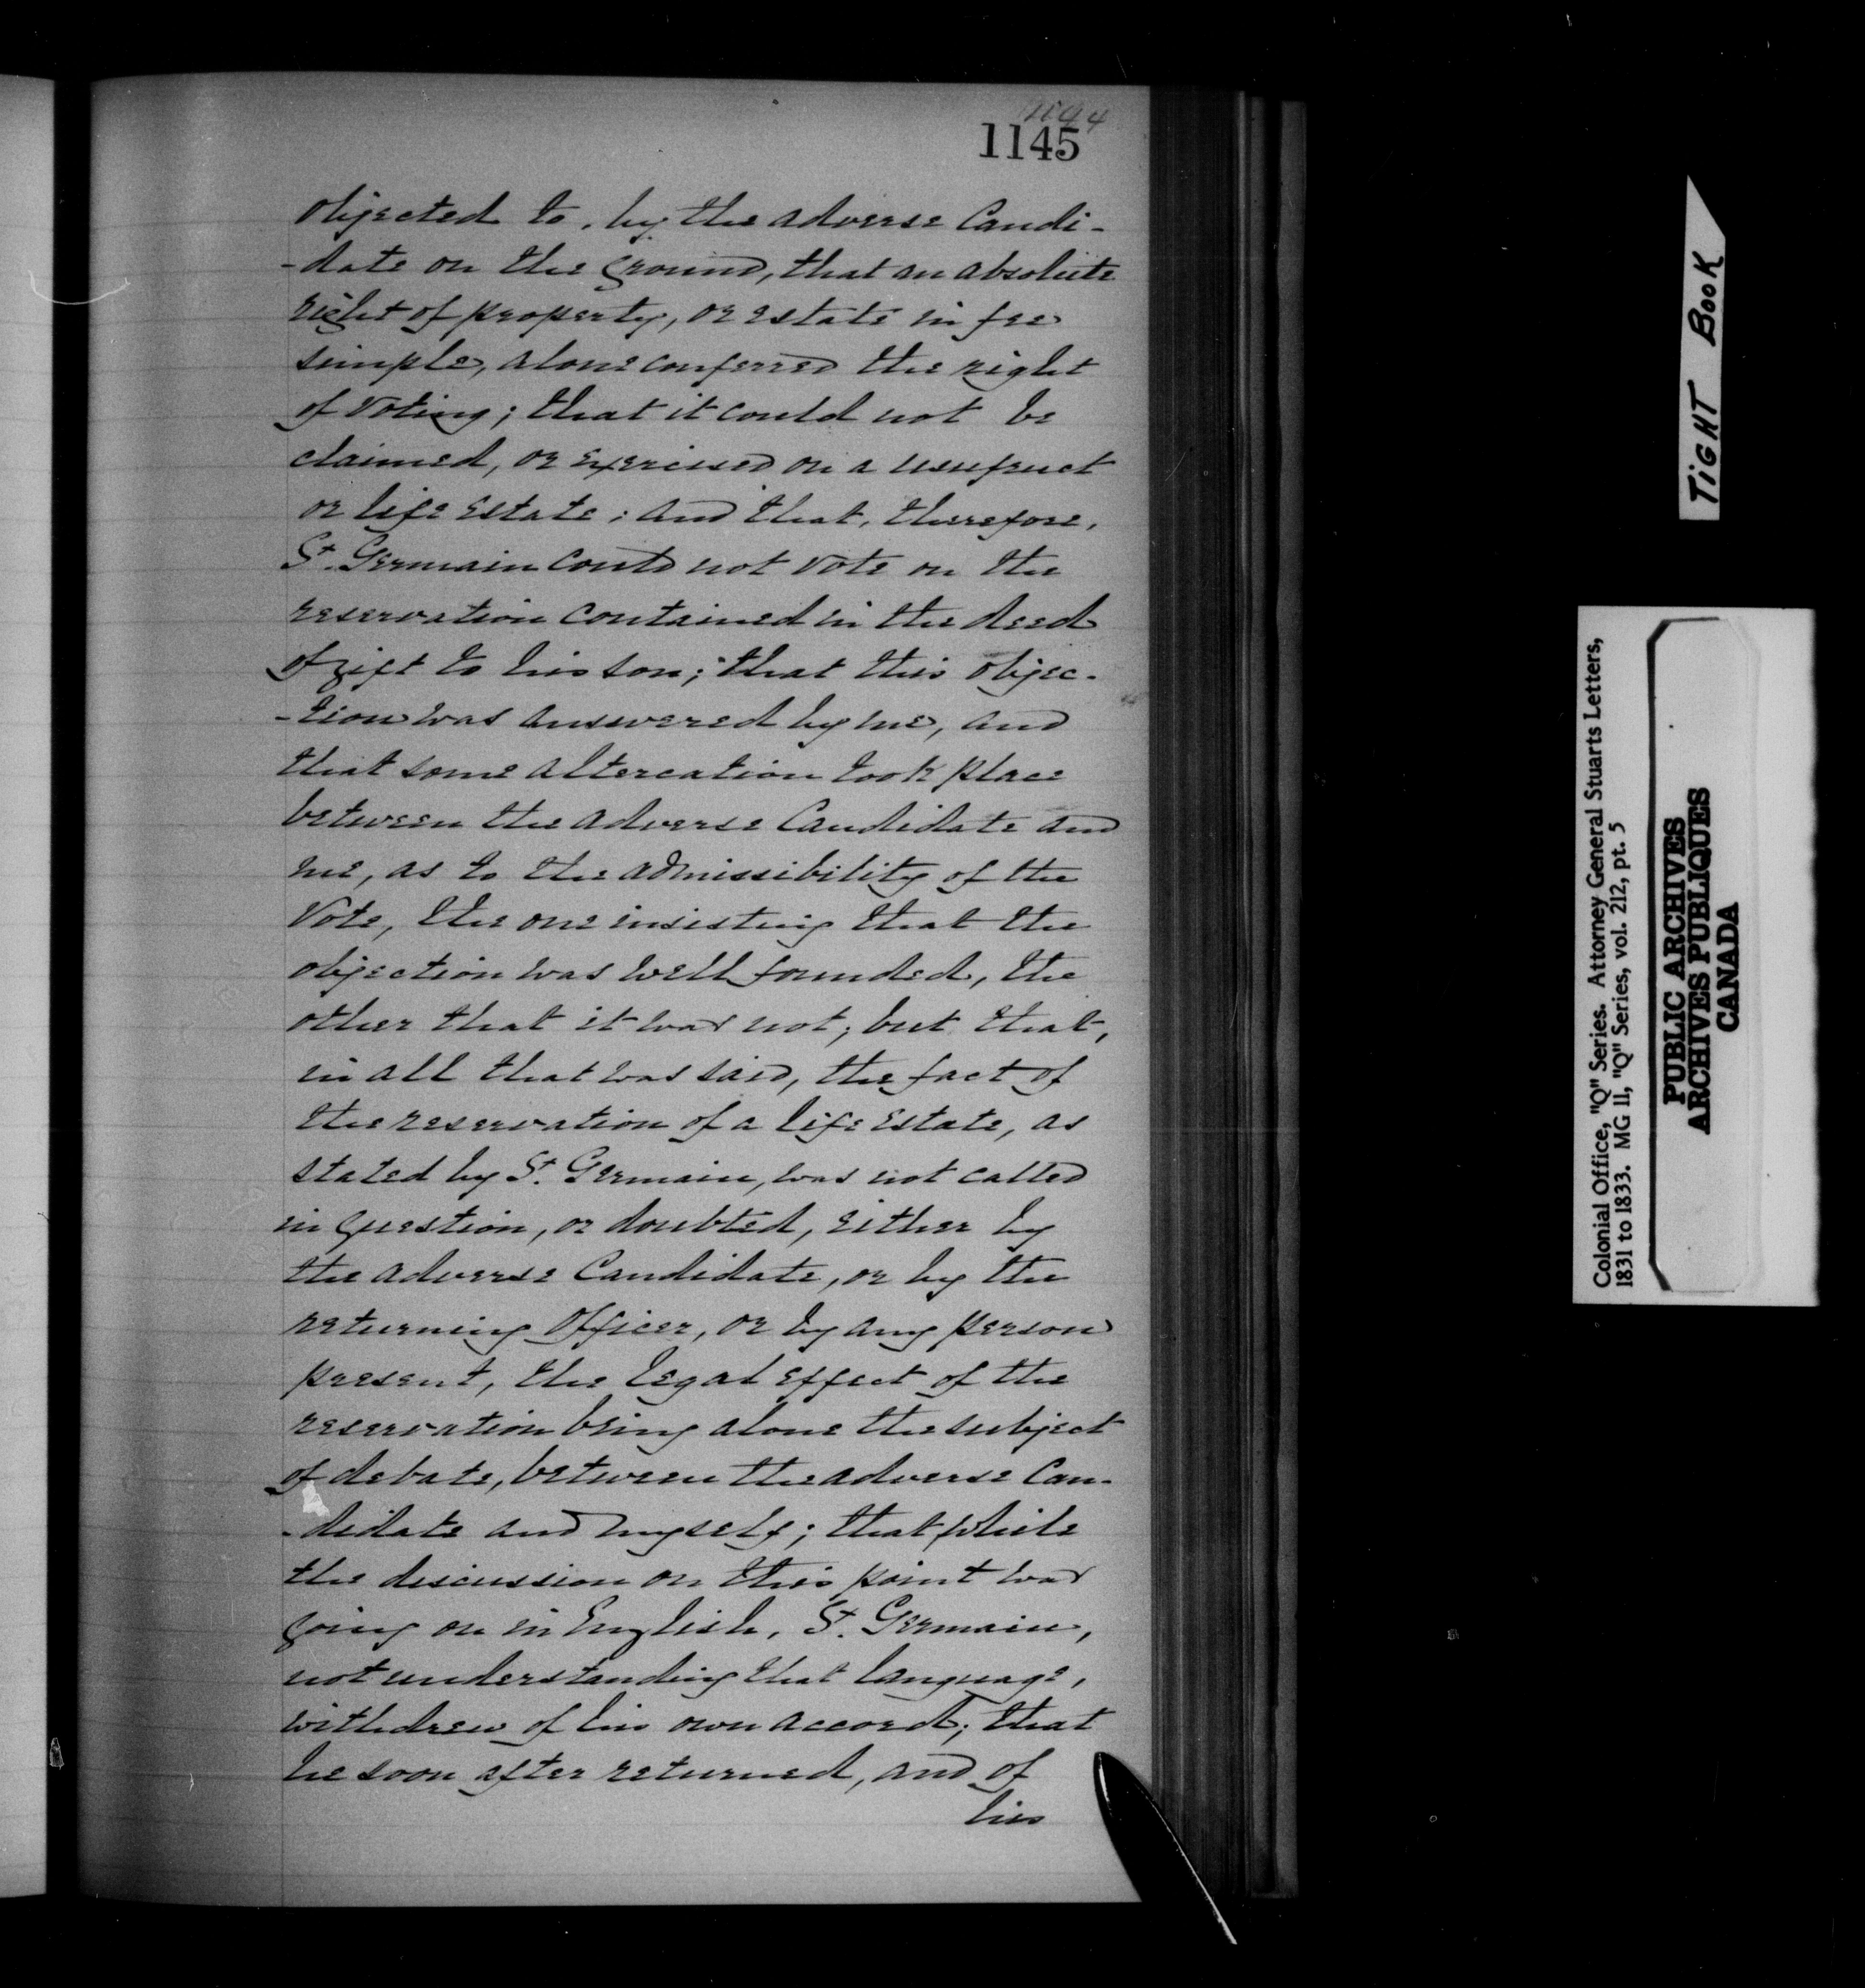 1145
objected to, by the adverse Candi-
-date on the Ground, that an absolute
right of property, or estate in fee
simple, alone conferred the right
of voting; that it could not be
claimed, or exercised on a usufruct
or life Estate; and that, therefore,
St. Germain could not vote on the
reservation contained in the deed
of gift to his son; that this objec-
-tion was answered by me, and
that some altercation took place
between the adverse Candidate and
me, as to the admissibility of the
Vote, the one insisting that the
objection was well founded, the
other that it was not; but that,
in all that was said, the fact of
the reservation of a life Estate, as
stated by St. Germain, was not called
in question, or doubted, either by
the adverse Candidate, or by the
returning Officer, or by any person
present, the legal effect of the
reservation being alone the subject
of debate, between the adverse Can-
-didate and myself; that while
the discussion on this point was
going on in English, St. Germain,
not understanding that language,
withdrew of his own accord; that
he soon after returned, and of
his
TIGHT BOOK
Colonial Office, "Q" Series. Attorney General Stuarts Letters,
1831 to 1833. MG 11, "Q" Series, vol. 212, pt. 5
PUBLIC ARCHIVES
ARCHIVES PUBLIQUES
CANADA